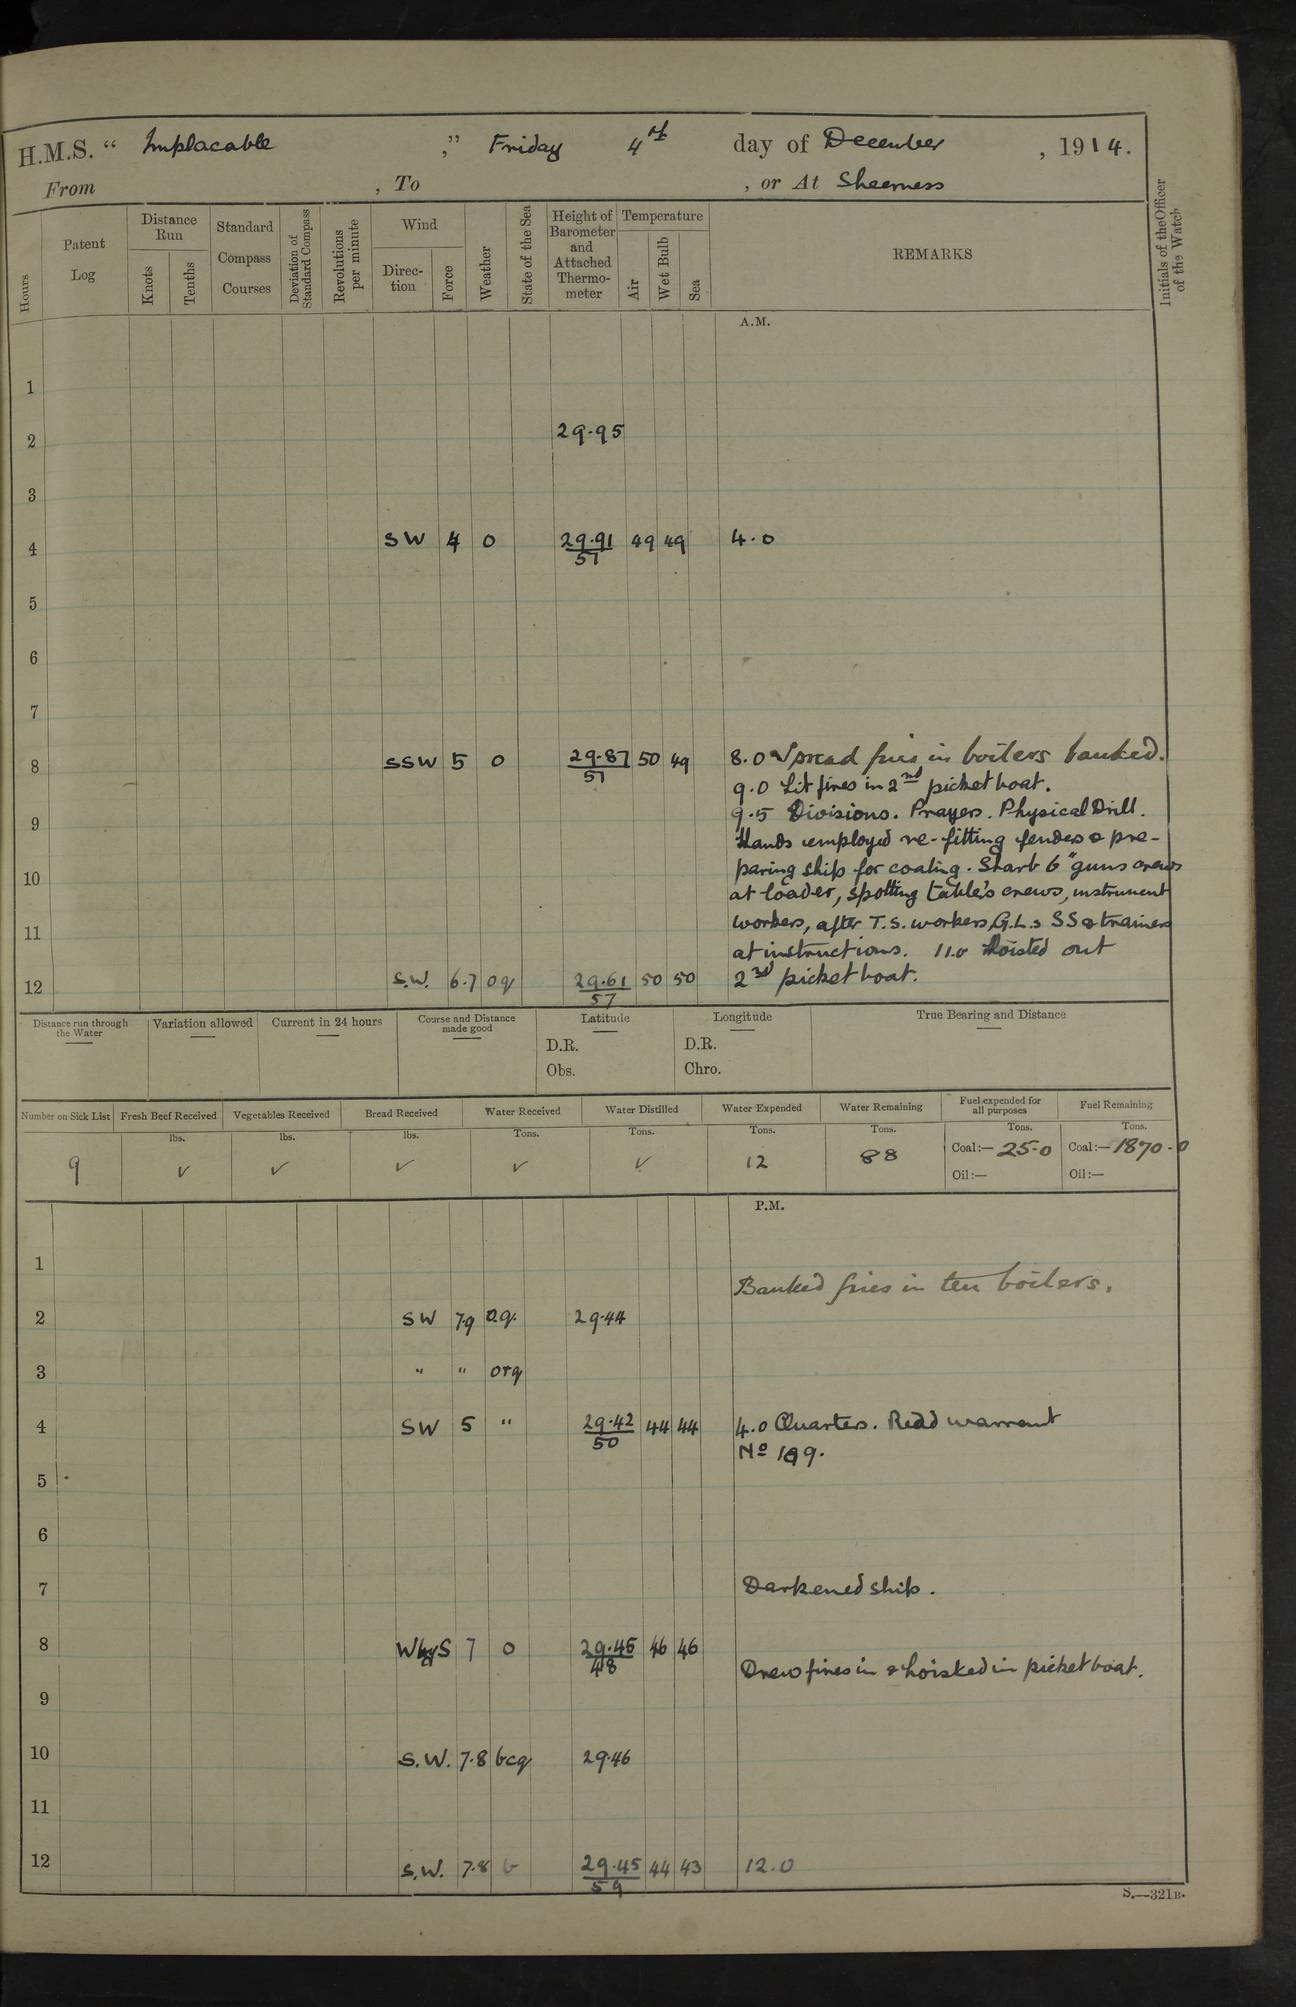 H.M.S. “ Implacable ,” Friday 4th day of December , 1914.
From , To , or At Sheerness
Hours
Patent Log
Distance Run
Knots
Tenths
Standard Compass Courses
Deviation of Standard Compass
Revolutions per minute
Wind
Direc-tion
Force
Weather
State of the Sea
Height of Barometer and Attached Thermo-meter
Temperature
Air
Wet Bulb
Sea
REMARKS
Initials of the Officer of the Watch
A.M.
1
2 29.95
3
4 SW 4 0 29.91/57 49 49 4.0
5
6
7
8 SSW 5 0 29.87/57 50 49 8.0 Spread fires in boilers banked.
9.0 Lit fires in 2nd picket boat.
9 9.5 Divisions. Prayers. Physical Drill.
Hands employed re-fitting fenders & pre-
10 paring ship for coaling. Starb 6" guns crews
at loader, spotting table's crews, instrument
11 workers, after T.S. workers, G.L.s SS & trainers
at instructions. 11.0 Hoisted out
12 S.W. 6.7 oq 29.61/57 50 50 2nd picket boat.
Distance run through the Water
Variation allowed
Current in 24 hours
Course and Distance made good
Latitude
D.R.
Obs.
Longitude
D.R.
Chro.
True Bearing and Distance
Number on Sick List Fresh Beef Received Vegetables Received Bread Received Water Received Water Distilled Water Expended Water Remaining Fuel expended for all purposes Fuel Remaining
lbs. lbs. lbs. Tons. Tons. Tons. Tons. Tons. Tons.
9 ✓ ✓ ✓ ✓ ✓ 12 88 Coal:— 25.0 Coal:— 1870.0
Oil:— Oil:—
P.M.
1
Banked fires in ten boilers.
2 SW 7.9 oq. 29.44
3 " " orq
4 SW 5 " 29.42/50 44 44 4.0 Quarters. Read warrant
No 189.
5
6
7 Darkened ship.
8 WbyS 7 0 29.45/48 46 46
Drew fires in & hoisted in picket boat.
9
10 S.W. 7.8 bcq 29.46
11
12 S.W. 7.8 b 29.45/59 44 43 12.0
S.—321B.